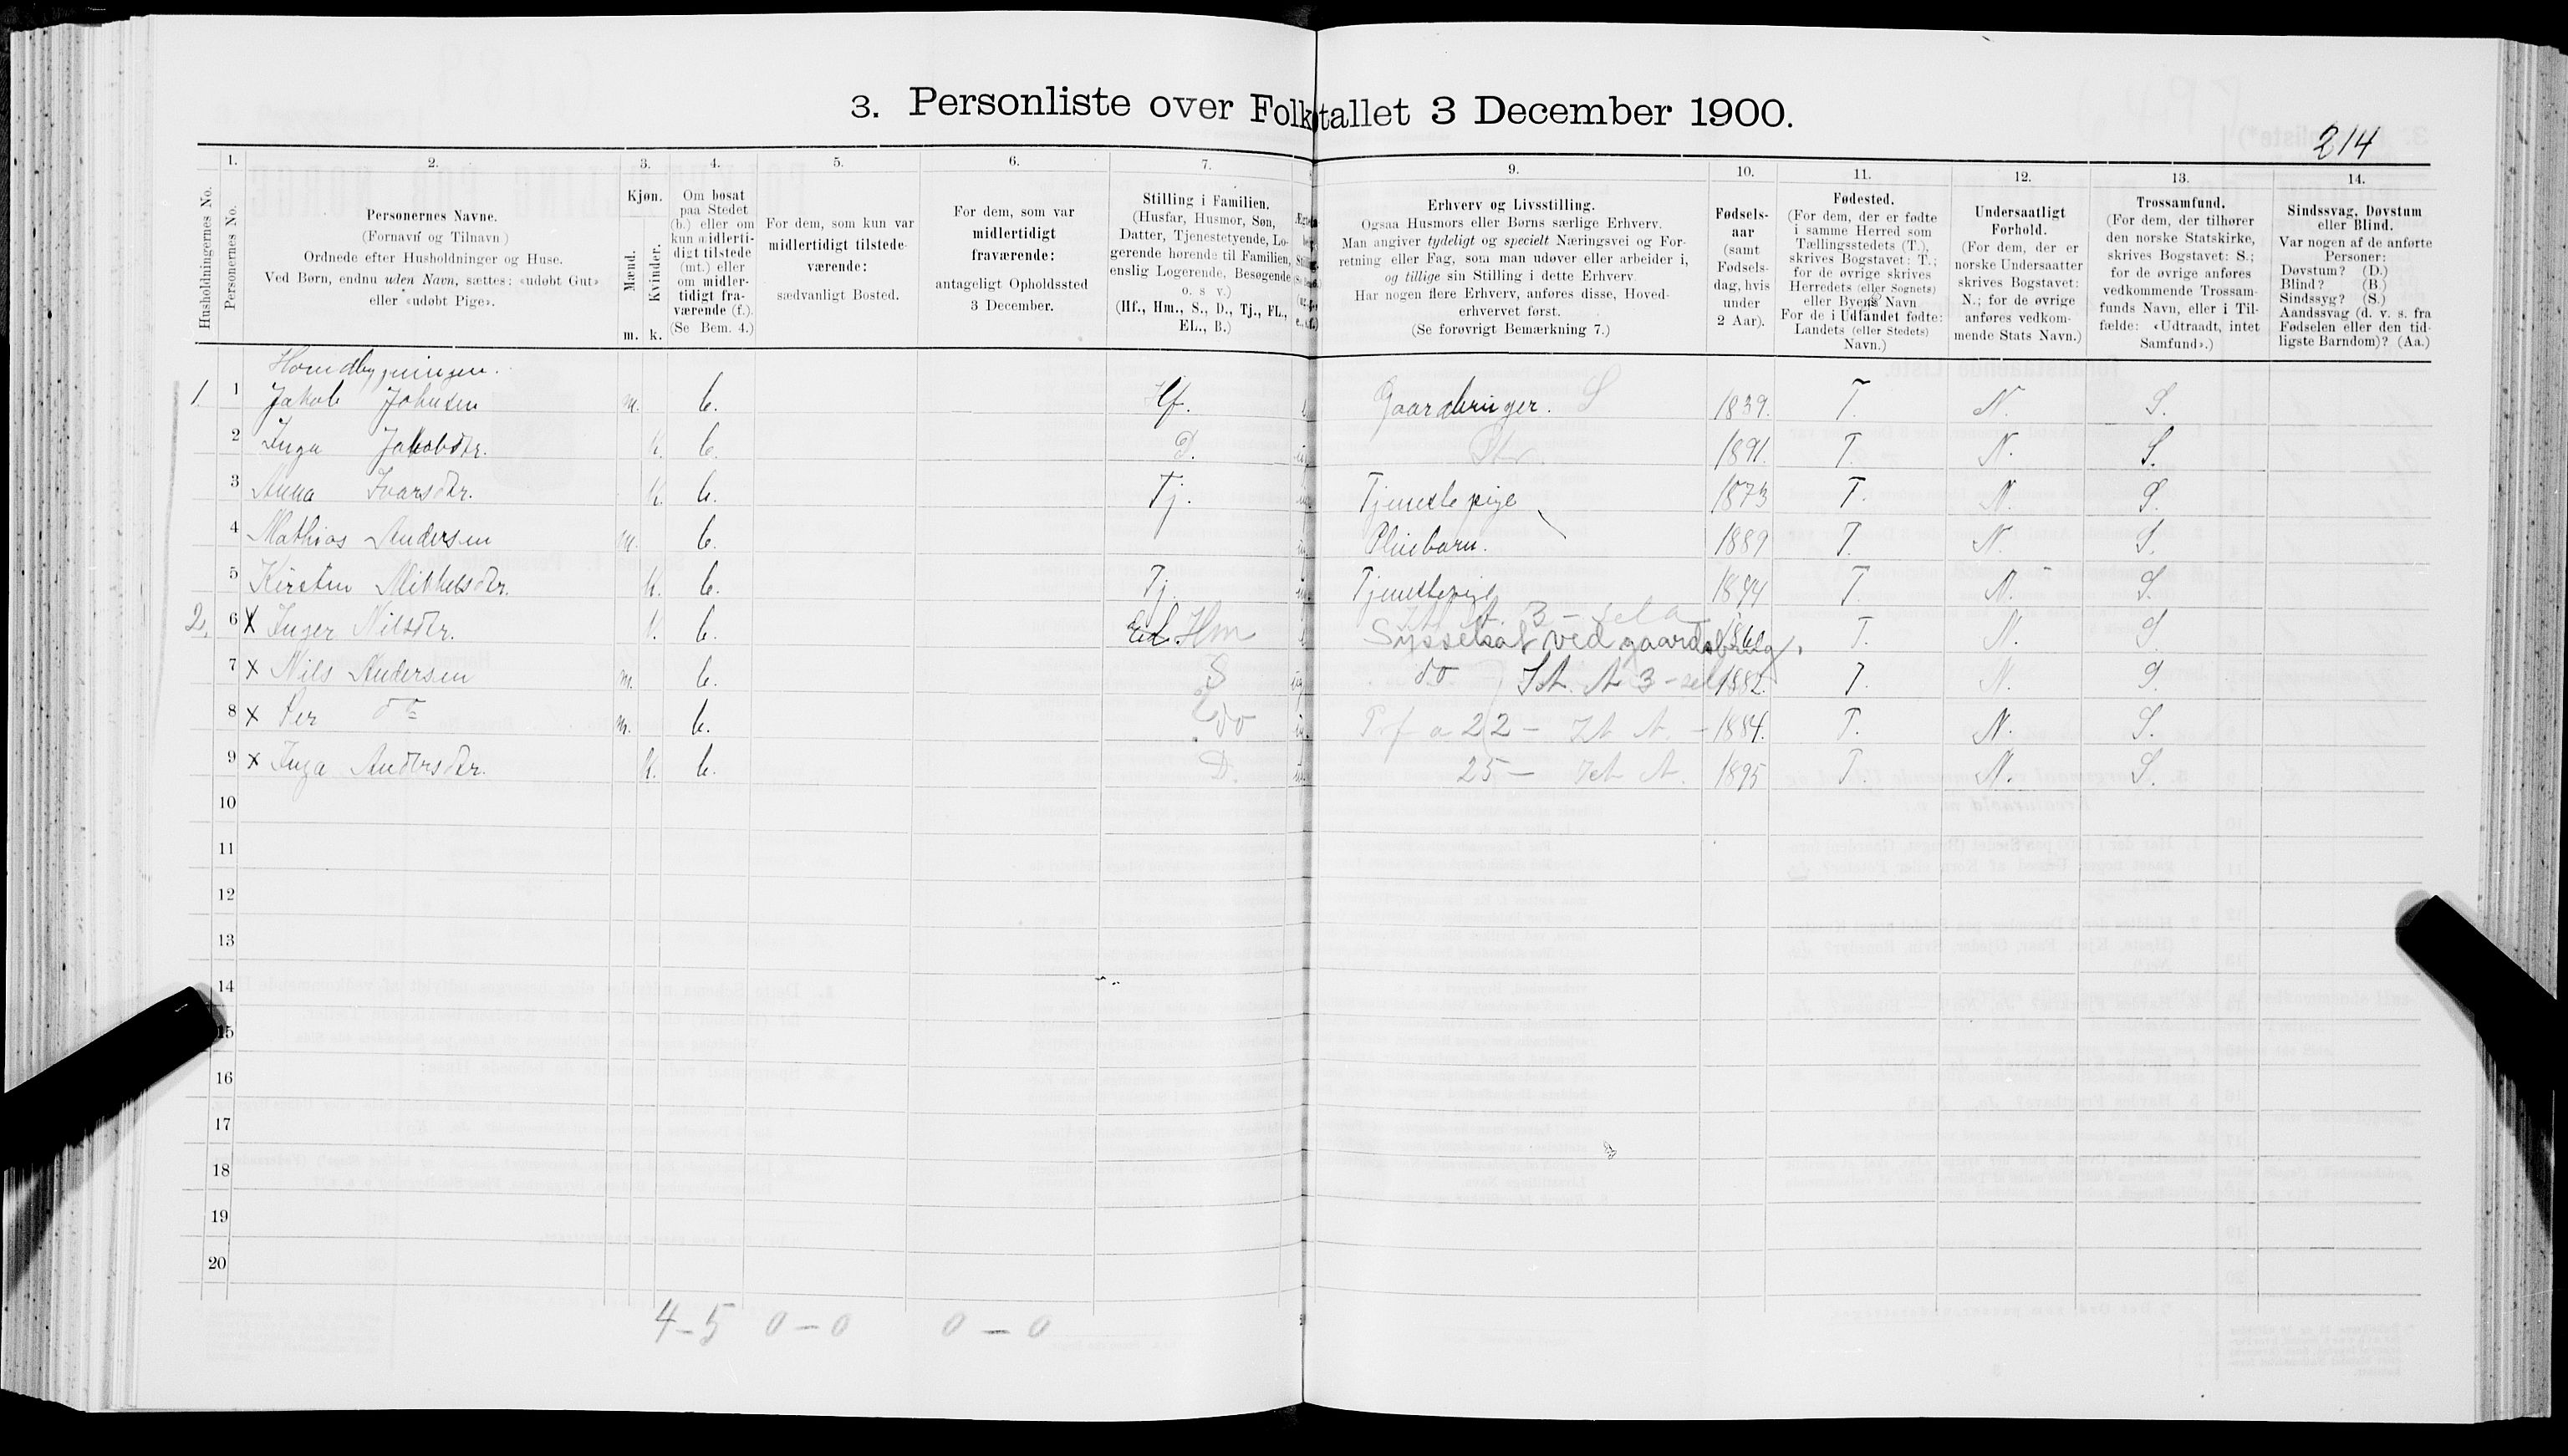 3. Personliste over Folketallet 3 December 1900.
214
Husholdningernes No.
1.
Personernes No.
2.
Personernes Navne.
(Fornavn og Tilnavn)
Ordnede efter Husholdninger og Huse.
Ved Børn, endnu uden Navn, sættes: «udøbt Gut»
eller «udøbt Pige».
3.
Kjøn.
Mænd.
Kvinder.
m. k.
4.
Om bosat
paa Stedet
(b.) eller om
kun midlerti-
digt tilstede
(mt.) eller
om midler-
tidigt fra-
værende (f.).
(Se Bem. 4.)
5.
For dem, som kun var
midlertidigt tilstede-
værende:
sædvanligt Bosted.
6.
For dem, som var
midlertidigt
fraværende:
antageligt Opholdssted
3 December.
7.
Stilling i Familien.
(Husfar, Husmor, Søn,
Datter, Tjenestetyende, Lo-
gerende hørende til Familien,
enslig Logerende, Besøgende
o. s v.)
(Hf., Hm., S., D., Tj., FL.,
EL., B.)
9.
Erhverv og Livsstilling.
Ogsaa Husmors eller Børns særlige Erhverv.
Man angiver tydeligt og specielt Næringsvei og For-
retning eller Fag, som man udøver eller arbeider i,
og tillige sin Stilling i dette Erhverv.
Har nogen flere Erhverv, anføres disse, Hoved-
erhvervet først.
(Se forøvrigt Bemærkning 7.)
10.
Fødsels-
aar
(samt
Fødsels-
dag, hvis
under
2 Aar).
11.
Fødested.
(For dem, der er fødte
i samme Herred som
Tællingsstedets (T.),
skrives Bogstavet: T.;
for de øvrige skrives
Herredets (eller Sognets)
eller Byens Navn
For de i Udlandet fødte:
Landets (eller Stedets)
Navn.)
12.
Undersaatligt
Forhold.
(For dem, der er
norske Undersaatter
skrives Bogstavet:
N.; for de øvrige
anføres vedkom-
mende Stats Navn.)
13.
Trossamfund.
(For dem, der tilhører
den norske Statskirke,
skrives Bogstavet: S.;
for de øvrige anføres
vedkommende Trossam-
funds Navn, eller i Til-
fælde: «Udtraadt, intet
Samfund».)
14.
Sindssvag, Døvstum
eller Blind.
Var nogen af de anførte
Personer:
Døvstum? (D.)
Blind? (B.)
Sindssyg? (S.)
Aandssvag (d. v. s. fra
Fødselen eller den tid-
ligste Barndom)? (Aa.)
1. 1 Jakob Johnsen m. b. Hf. Gaardbruger. S 1839. T. N. S.
2 Inga Jakobsdtr. k. b. D. 1891. T. N. S.
3 Anna Ivarsdtr. k. b. Tj. Tjenestepige 1873 T. N. S.
4 Mathias Andersen m. b. Pleiebarn. 1889 T. N. S.
5 Kirsten Mikkelsdtr. k. b. Tj. Tjenestepige 1844 T. N. S.
2. 6 X Inger Nilsdtr. k. b. Hm Sysselsat ved gaardsbrug. T. N. S.
7 x Nils Andersen m. b. S do 1882. T. N. S.
8 x Per do m. b. do 22 - 1884. T. N. S.
9 x Inga Andersdtr. k. b. D. 25 - 1895 T. N. S.
10
11
12
13
14
15
16
17
18
19
20
4-5 0-0 0-0